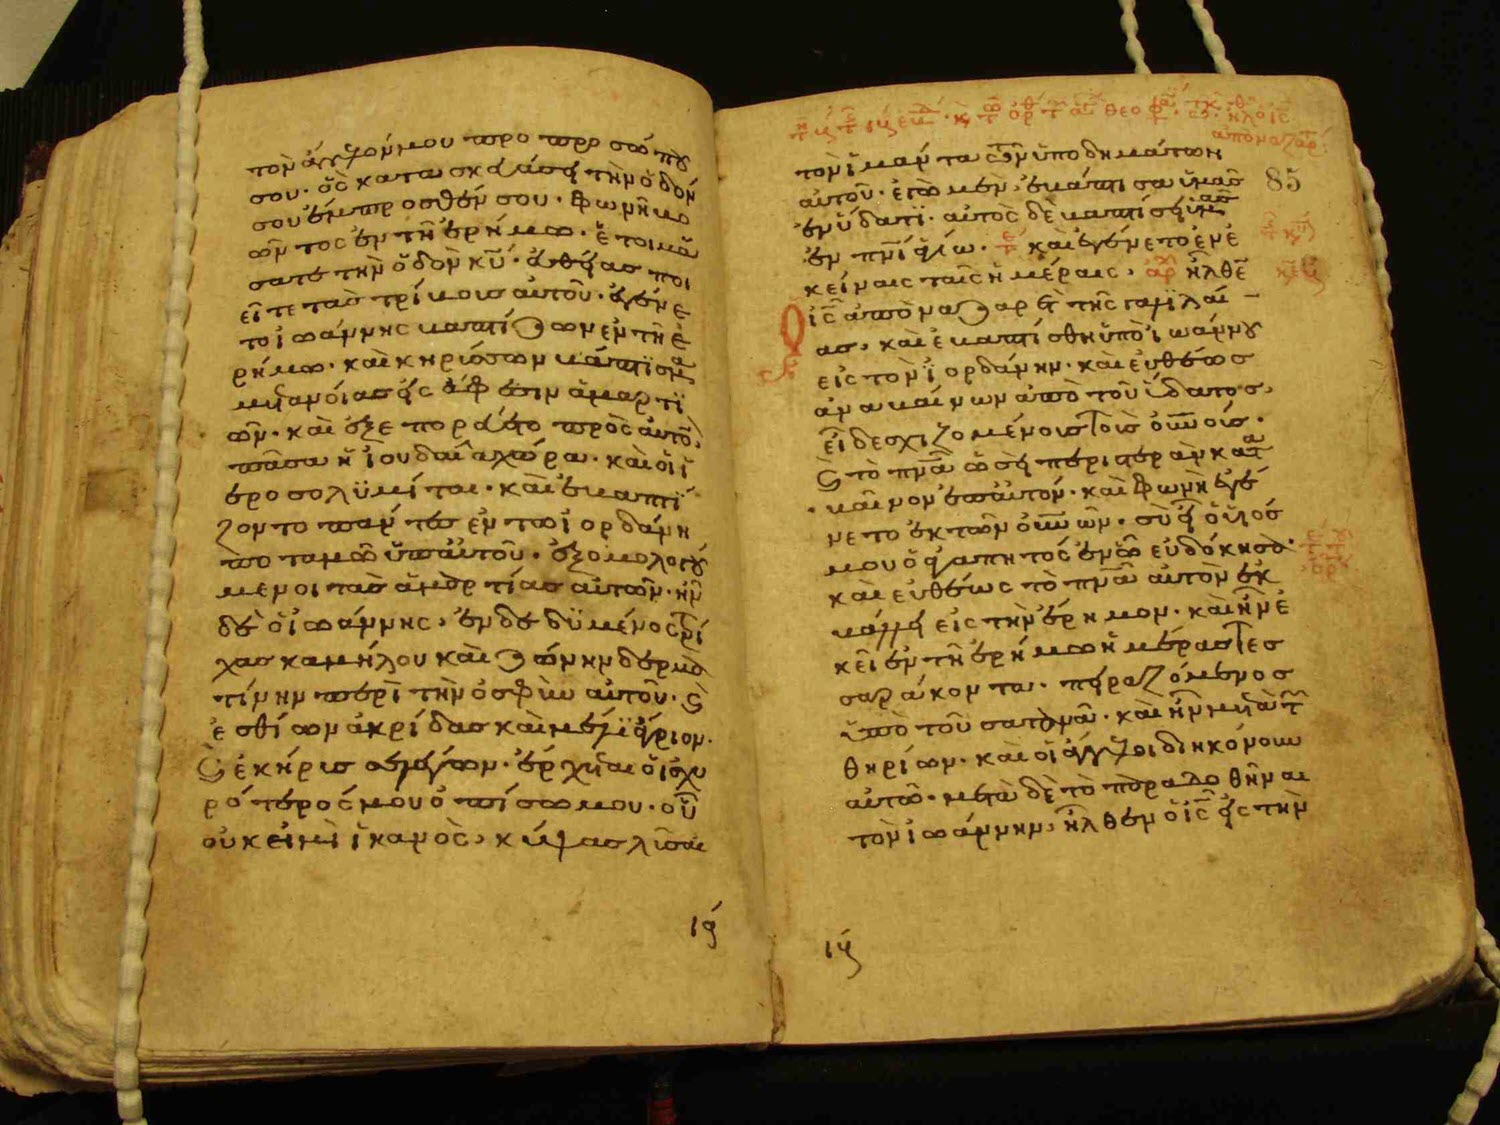 τὸν ἄγγελόν μου πρὸ προσώπου
σου· ὃς κατασκευάσει τὴν ὁδόν
σου ἔμπροσθέν σου· φωνὴ βο
ῶντος ἐν τῇ ἐρήμω· ἑτοιμά
σατε τὴν ὁδὸν κ̅υ̅· εὐθείας ποι
εῖτε τὰς τρίβους αὐτοῦ· ἐγένε
το ἰωάννης βαπτίζων ἐν τῇ ἐ
ρήμω· καὶ κηρύσσων βάπτισμα
μετανοίας εἰς ἄφεσιν ἁμαρτι
ῶν· καὶ ἐξεπορεύετο πρὸς αὐτὸν
πᾶσα ἡ ἰουδαία χώρα· καὶ οἱ ἱ
εροσολϋμίται· καὶ ἐβαπτί
ζοντο πάντες ἐν τῶ ἰορδάνη
ποταμῶ ὑπ' αὐτοῦ· ἐξομολογού
μενοι τὰς ἁμαρτίας αὐτῶν· ἦν
δὲ ὁ ἰωάννης, ἐνδεδυμένος τρί
χας καμήλου καὶ ζώνην δερμα
τίνην περὶ τὴν ὀσφὺν αὐτοῦ· ϗ
ἐσθίων ἀκρίδας καὶ μέλι ἄγριον·
ϗ ἐκήρισσε λέγων· ἔρχεται ὁ ἰσχυ
ρότερός μου ὀπίσω μου· οὗ
οὐκ εἰμὶ ἱκανὸς, κύψας λῦσαι
85
τὸν ἱμάντα τῶν ὑποδημάτων
αὐτοῦ· ἐγὼ μὲν, ἐβάπτισα ὑμᾶς
ἐν ὕδατι· αὐτὸς δὲ βαπτίσει ὑμᾶς
ἐν π̅ν̅ι̅ ἁγίω· καὶ ἐγένετο ἐν ἐ
κείναις ταῖς ἡμέραις, ἦλθεν
ι̅ς̅ ἀπὸ ναζαρὲτ τῆς γαλιλαί
ας, καὶ ἐβαπτίσθη ὑπὸ ἰωάννου
εἰς τὸν ἰορδάνην· καὶ εὐθέως
ἀναβαίνων ἀπὸ τοῦ ὕδατος,
εἶδε σχιζομένους τοὺς ο̅υ̅νους·
ϗ τὸ π̅ν̅α̅ ὡσεὶ περιστερὰν κατα
βαῖνον ἐπ' αὐτόν· καὶ φωνὴ ἐγέ
νετο ἐκ τῶν ο̅υ̅νῶν· σὺ εἶ ὁ υἱός
μου ὁ ἀγαπητὸς ἐν ᾧ εὐδόκησα·
καὶ εὐθέως τὸ π̅ν̅α̅ αὐτὸν ἐκ
βάλλει εἰς τὴν ἔρημον· καὶ ἦν ἐ
κεῖ ἐν τῇ ἐρήμω ἡμέρας τες
σαράκοντα· πειραζόμενος
ὑπὸ τοῦ σατανᾶ· καὶ ἦν μετὰ τ
θηρίων· καὶ οἱ ἄγγελοι διηκόνουν
αὐτῶ· μετὰ δὲ τὸ παραδοθῆναι
τὸν ἰωάννην, ἦλθεν ὁ ι̅ς̅ εἰς τὴν